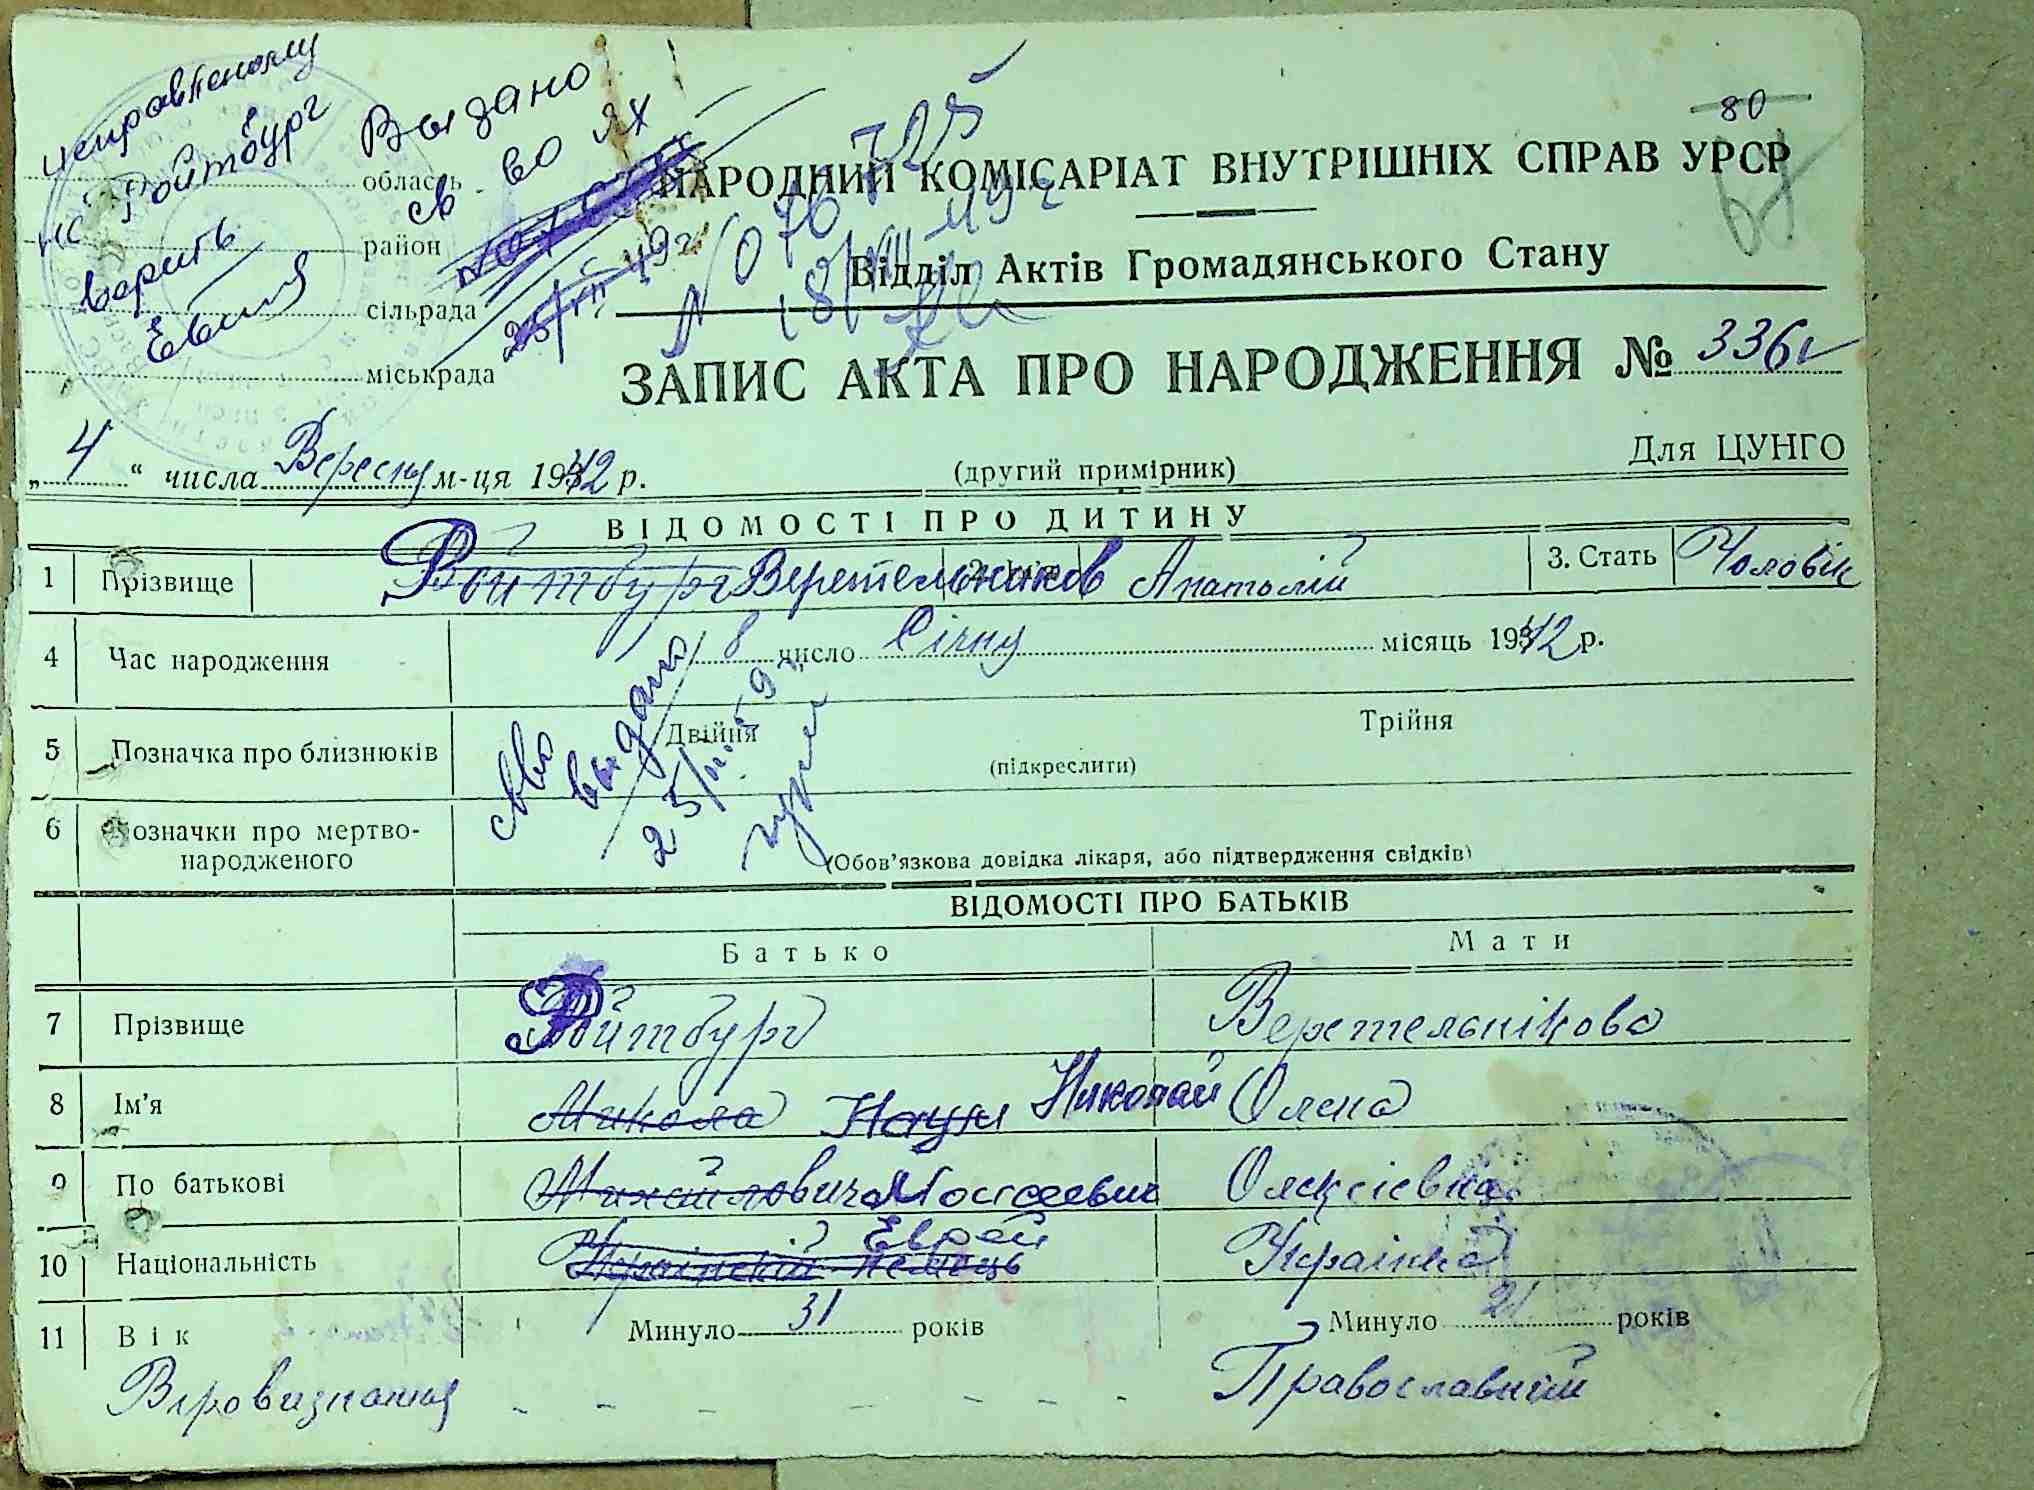 исправленому
на Ройтбург
верить
Выдано
св-во ЯХ
№ 076725
область
район
сільрада
міськрада
80
НАРОДНИЙ КОМІСАРІАТ ВНУТРІШНІХ СПРАВ УРСР
Відділ Актів Громадянського Стану
ЗАПИС АКТА ПРО НАРОДЖЕННЯ № 336
„4“ числа Вересня м-ця 1942 р.
(другий примірник)
Для ЦУНГО
ВІДОМОСТІ ПРО ДИТИНУ
1 Прізвище Ройтбург Веретельников Анатолій 3. Стать Чоловік
4 Час народження 8 число Січня місяць 1942 р.
5 Позначка про близнюків Двійня Трійня
(підкреслити)
св-во выдано
6 Позначки про мертво-
народженого
(Обов’язкова довідка лікаря, або підтвердження свідків)
ВІДОМОСТІ ПРО БАТЬКІВ
Батько Мати
7 Прізвище Ройтбург Веретельнікова
8 Ім’я Микола Наум Николай Олена
9 По батькові Михайлович Моисеевич Олексіевна
10 Національність Украінский Немець Еврей Украінка
11 Вік Минуло 31 років Минуло 21 років
Віровизнання - - - - - - Православний